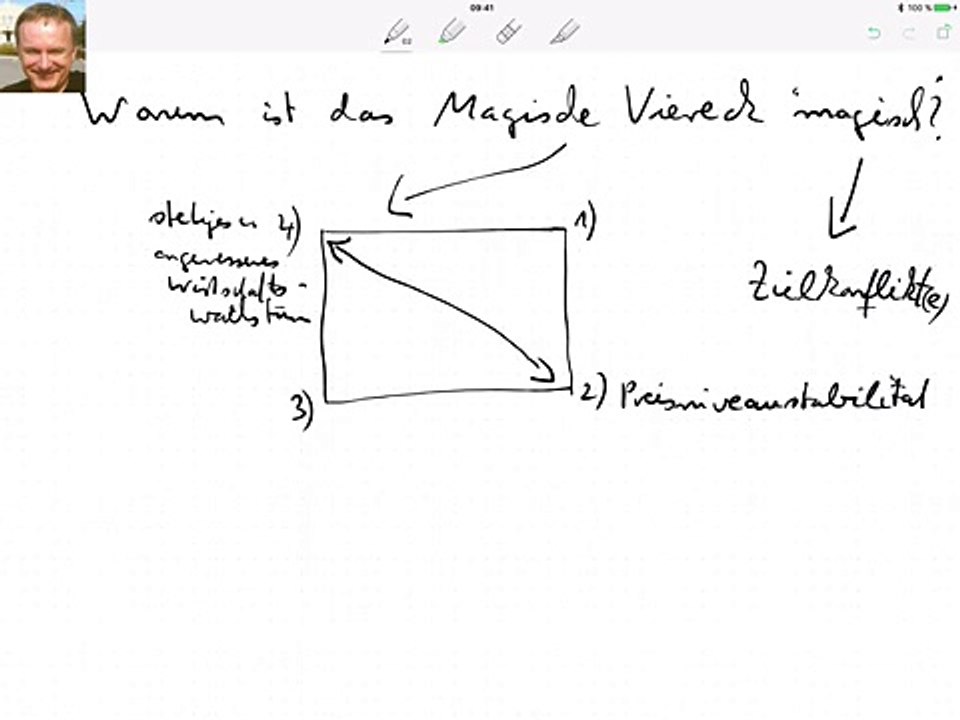 09:41
100 %
Warum ist das Magische Viereck "magisch?
stetiges u 4)
angemessenes
Wirtschafts-
wachstum
1)
Zielkonflikt(e)
2) Preisniveaustabilität
3)